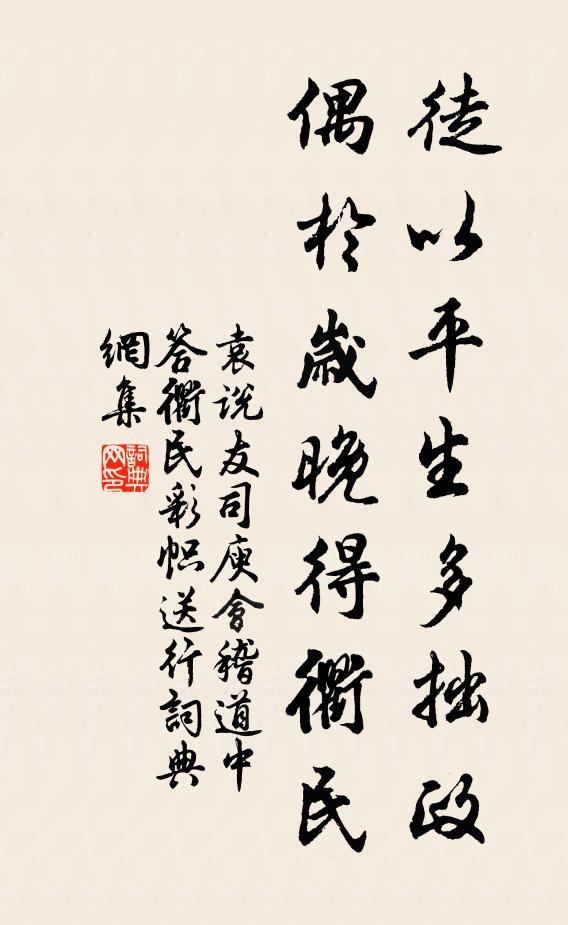 徒以平生多拙政
偶於歲晚得衢民
袁說友司庾會稽道中
答衢民彩幟送行詞典
網集
詞典
网印